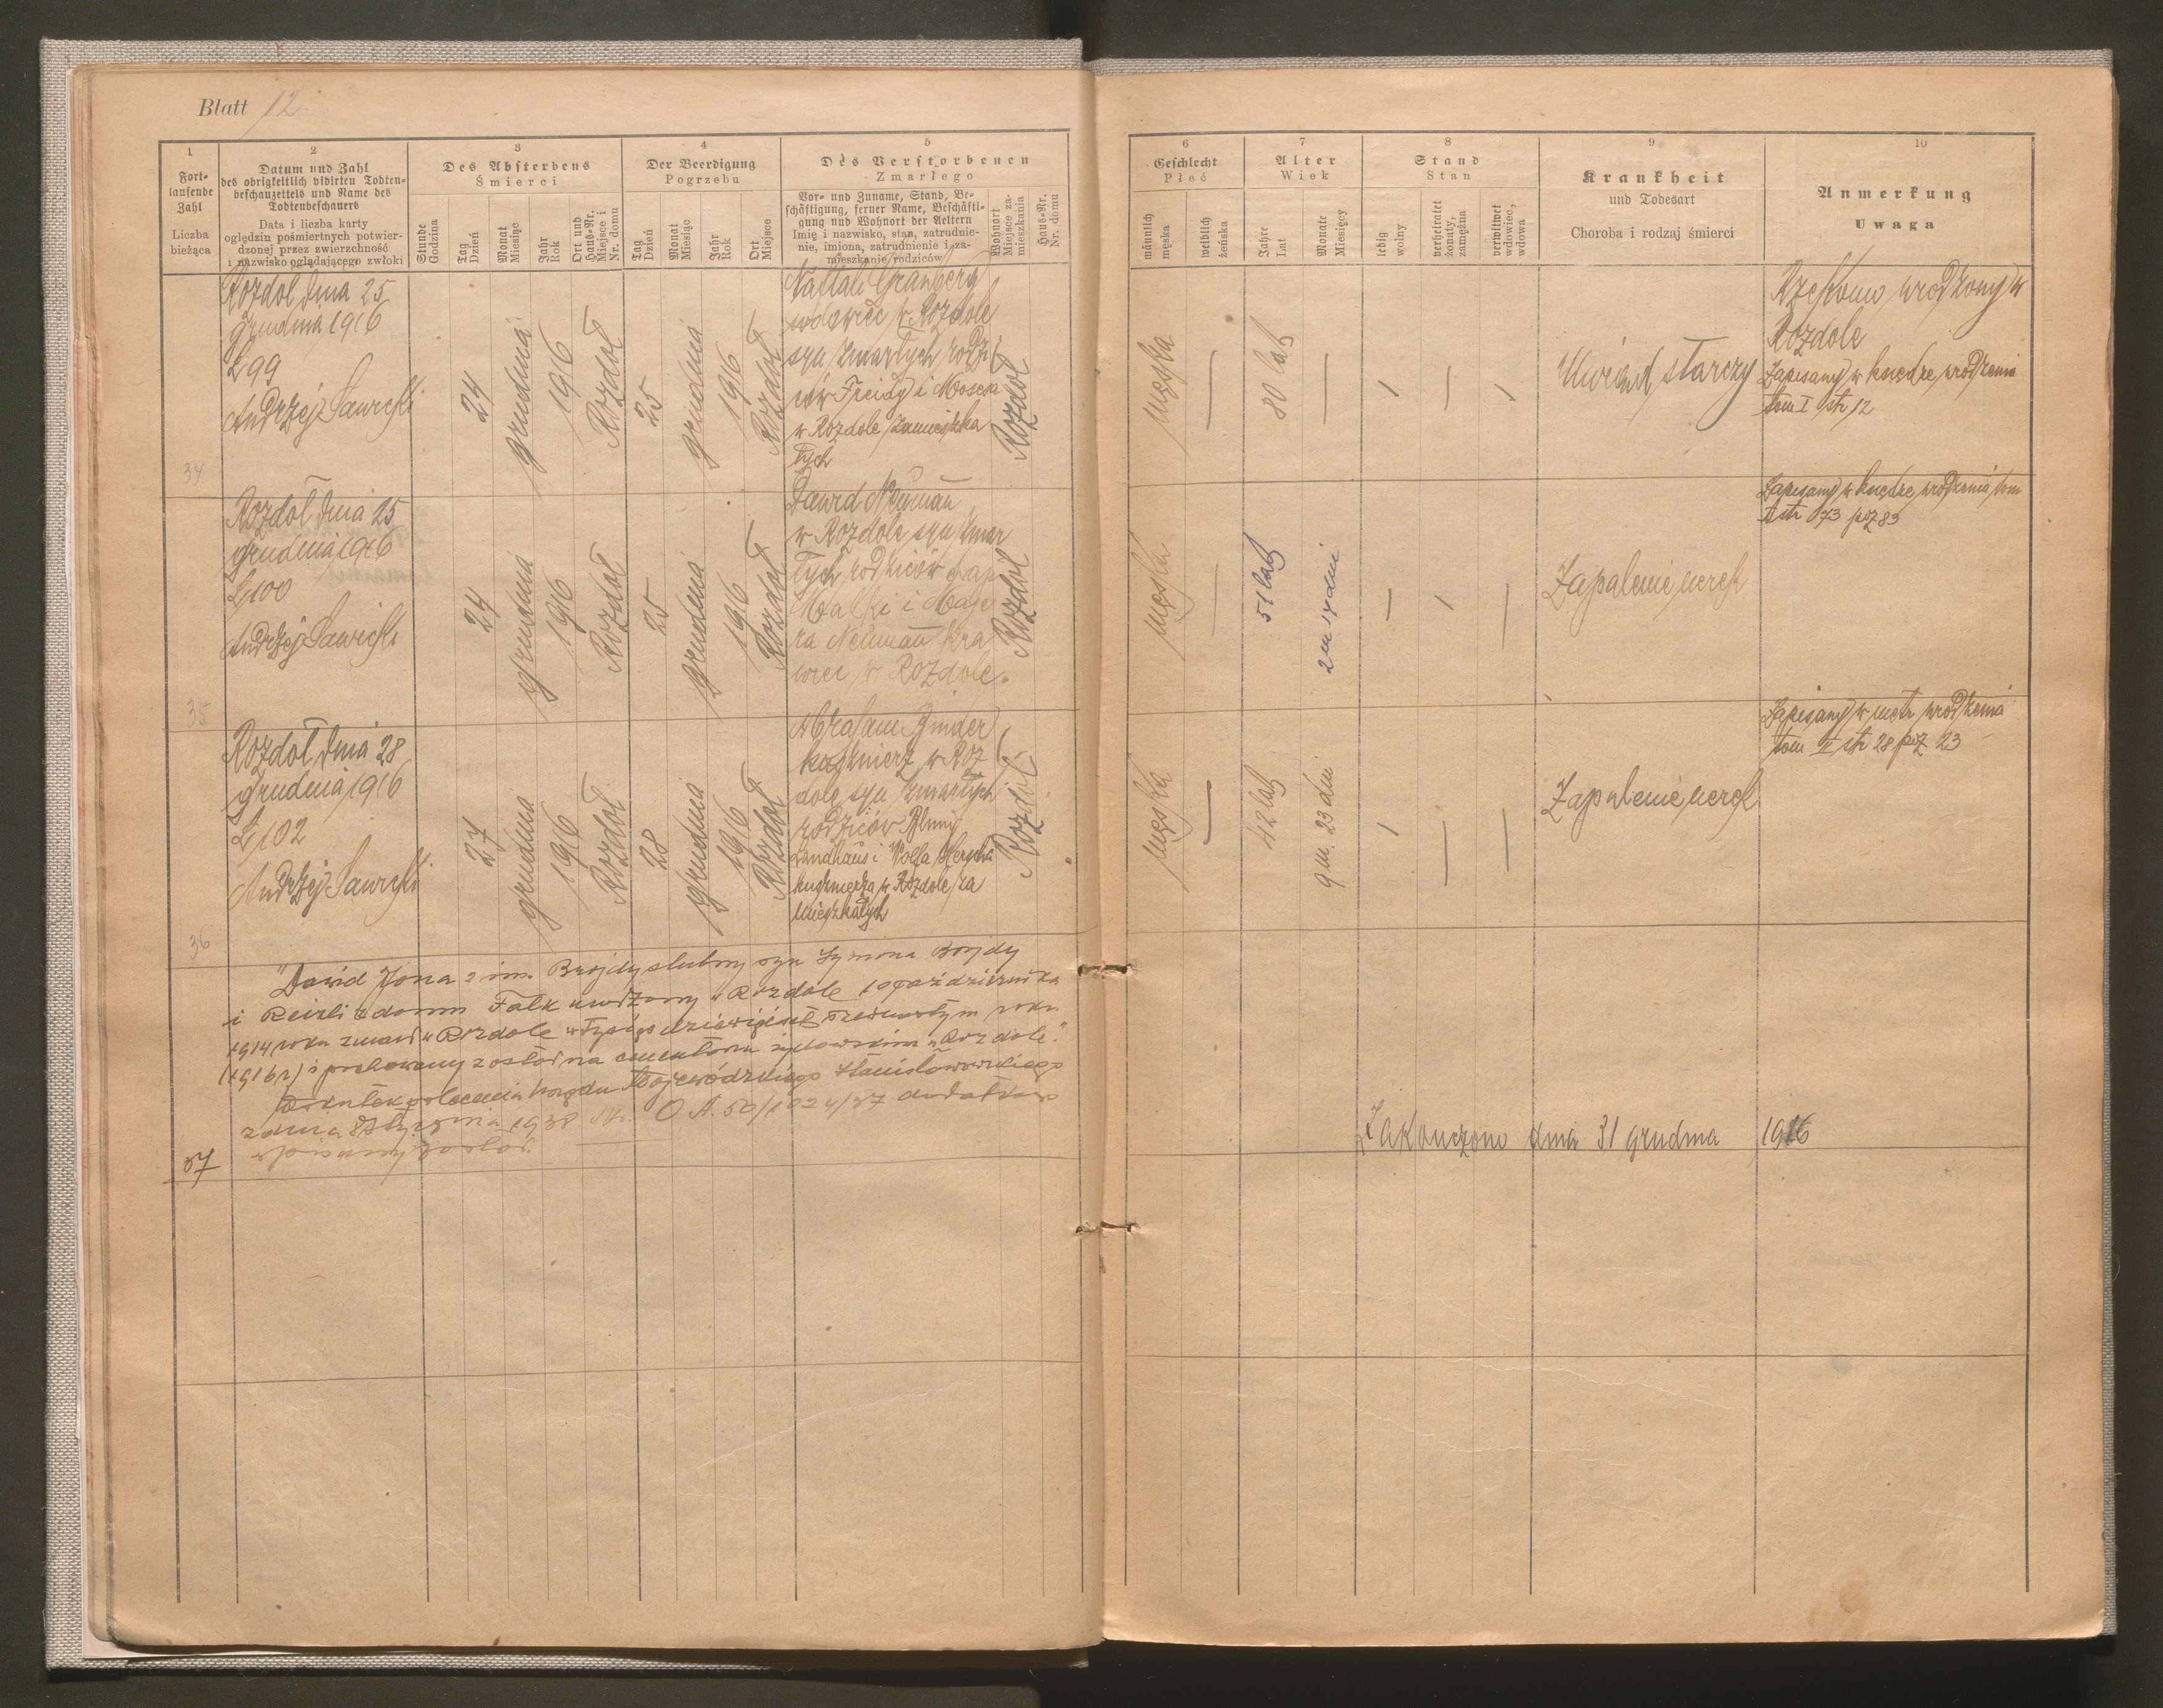 Blatt 12.
1
Fort-
laufende
Zahl
Liczba
bieżąca
2
Datum und Zahl
des obrigkeitlich vidirten Todten-
beschauzettels und Name des
Todtenbeschauers
Data i liczba karty
oględzin pośmiertnych potwier-
dzonej przez zwierzchność
i nazwisko oglądającego zwłoki
3
Des Absterbens
Śmierci
Stunde
Godzina
Tag
Dzień
Monat
Miesiąc
Jahr
Rok
Ort und
Haus-Nr.
Miejsce i
Nr. domu
4
Der Beerdigung
Pogrzebu
Tag
Dzień
Monat
Miesiąc
Jahr
Rok
Ort
Miejsce
5
Des Verstorbenen
Zmarłego
Vor- und Zuname, Stand, Be-
schäftigung, ferner Name, Beschäfti-
gung und Wohnort der Aeltern
Imię i nazwisko, stan, zatrudnie-
nie, imiona, zatrudnienie i za-
mieszkanie rodziców
Wohnort
Miejsce za-
mieszkania
Haus-Nr.
Nr. domu
6
Geschlecht
Płeć
männlich
męska
weiblich
żeńska
7
Alter
Wiek
Jahre
Lat
Monate
Miesięcy
8
Stand
Stan
ledig
wolny
verheiratet
żonaty,
zamężna
verwitwet
wdowiec,
wdowa
9
Krankheit
und Todesart
Choroba i rodzaj śmierci
10
Anmerkung
Uwaga
34
Rozdoł dnia 25
grudnia 1916
L 99
Andrzej Sawicki
24
grudnia
1916
Rozdoł
25
grudnia
1916
Rozdoł
Naftali Granberg
wdowiec w Rozdole
syn zmarłych rodzi
ców Freidy i Mosesa
w Rozdole zamieszka
łych
Rozdoł
męska
80 lat
Uwiąd starczy
Rzekomo urodzony w
Rozdole
Zapisany w księdze urodzenia
tom I str 12
35
Rozdoł dnia 25
grudnia 1916
L 100
Andrzej Sawicki
24
grudnia
1916
Rozdoł
25
grudnia
1916
Rozdoł
Dawid Neumann
w Rozdole syn zmar
łych rodziców
Malki i Maje
ra Neumann kra
wiec w Rozdole.
Rozdoł
męska
51 lat
2 m 17 dni
Zapalenie nerek
Zapisany w księdze urodzenia tom
II str 073 poz 83
36
Rozdoł dnia 28
grudnia 1916
L 102
Andrzej Sawicki
27
grudnia
1916
Rozdoł
28
grudnia
1916
Rozdoł
Abraham Binder
kuśmierz w Roz
dole syn zmarłych
rodziców Blumy
Landhaus i Wolfa Herscha
kuśmierza w Rozdole za
mieszkałych
Rozdoł
męska
42 lat
9 m. 23 dni
Zapalenie nerek
Zapisany w metr urodzenia
tom II str 28 poz 23
37
"Dawid Jona 2 im. Brojdy ślubny syn Symona Brojdy
i Reizli z domu Falk urodzony w Rozdole 10 października
1914 roku zmarł w Rozdole w tysiąc dziewięćset szesnastym roku
(1916 r.) i pochowany został na cmentarzu żydowskim w Rozdole."
Wskutek polecenia Urzędu Wojewódzkiego Stanisławowskiego
z dnia 8 stycznia 1938 Nr. O.A. 50/1024/37 dodatkowo
wpisany został.
Zakończono dnia 31 grudnia 1916